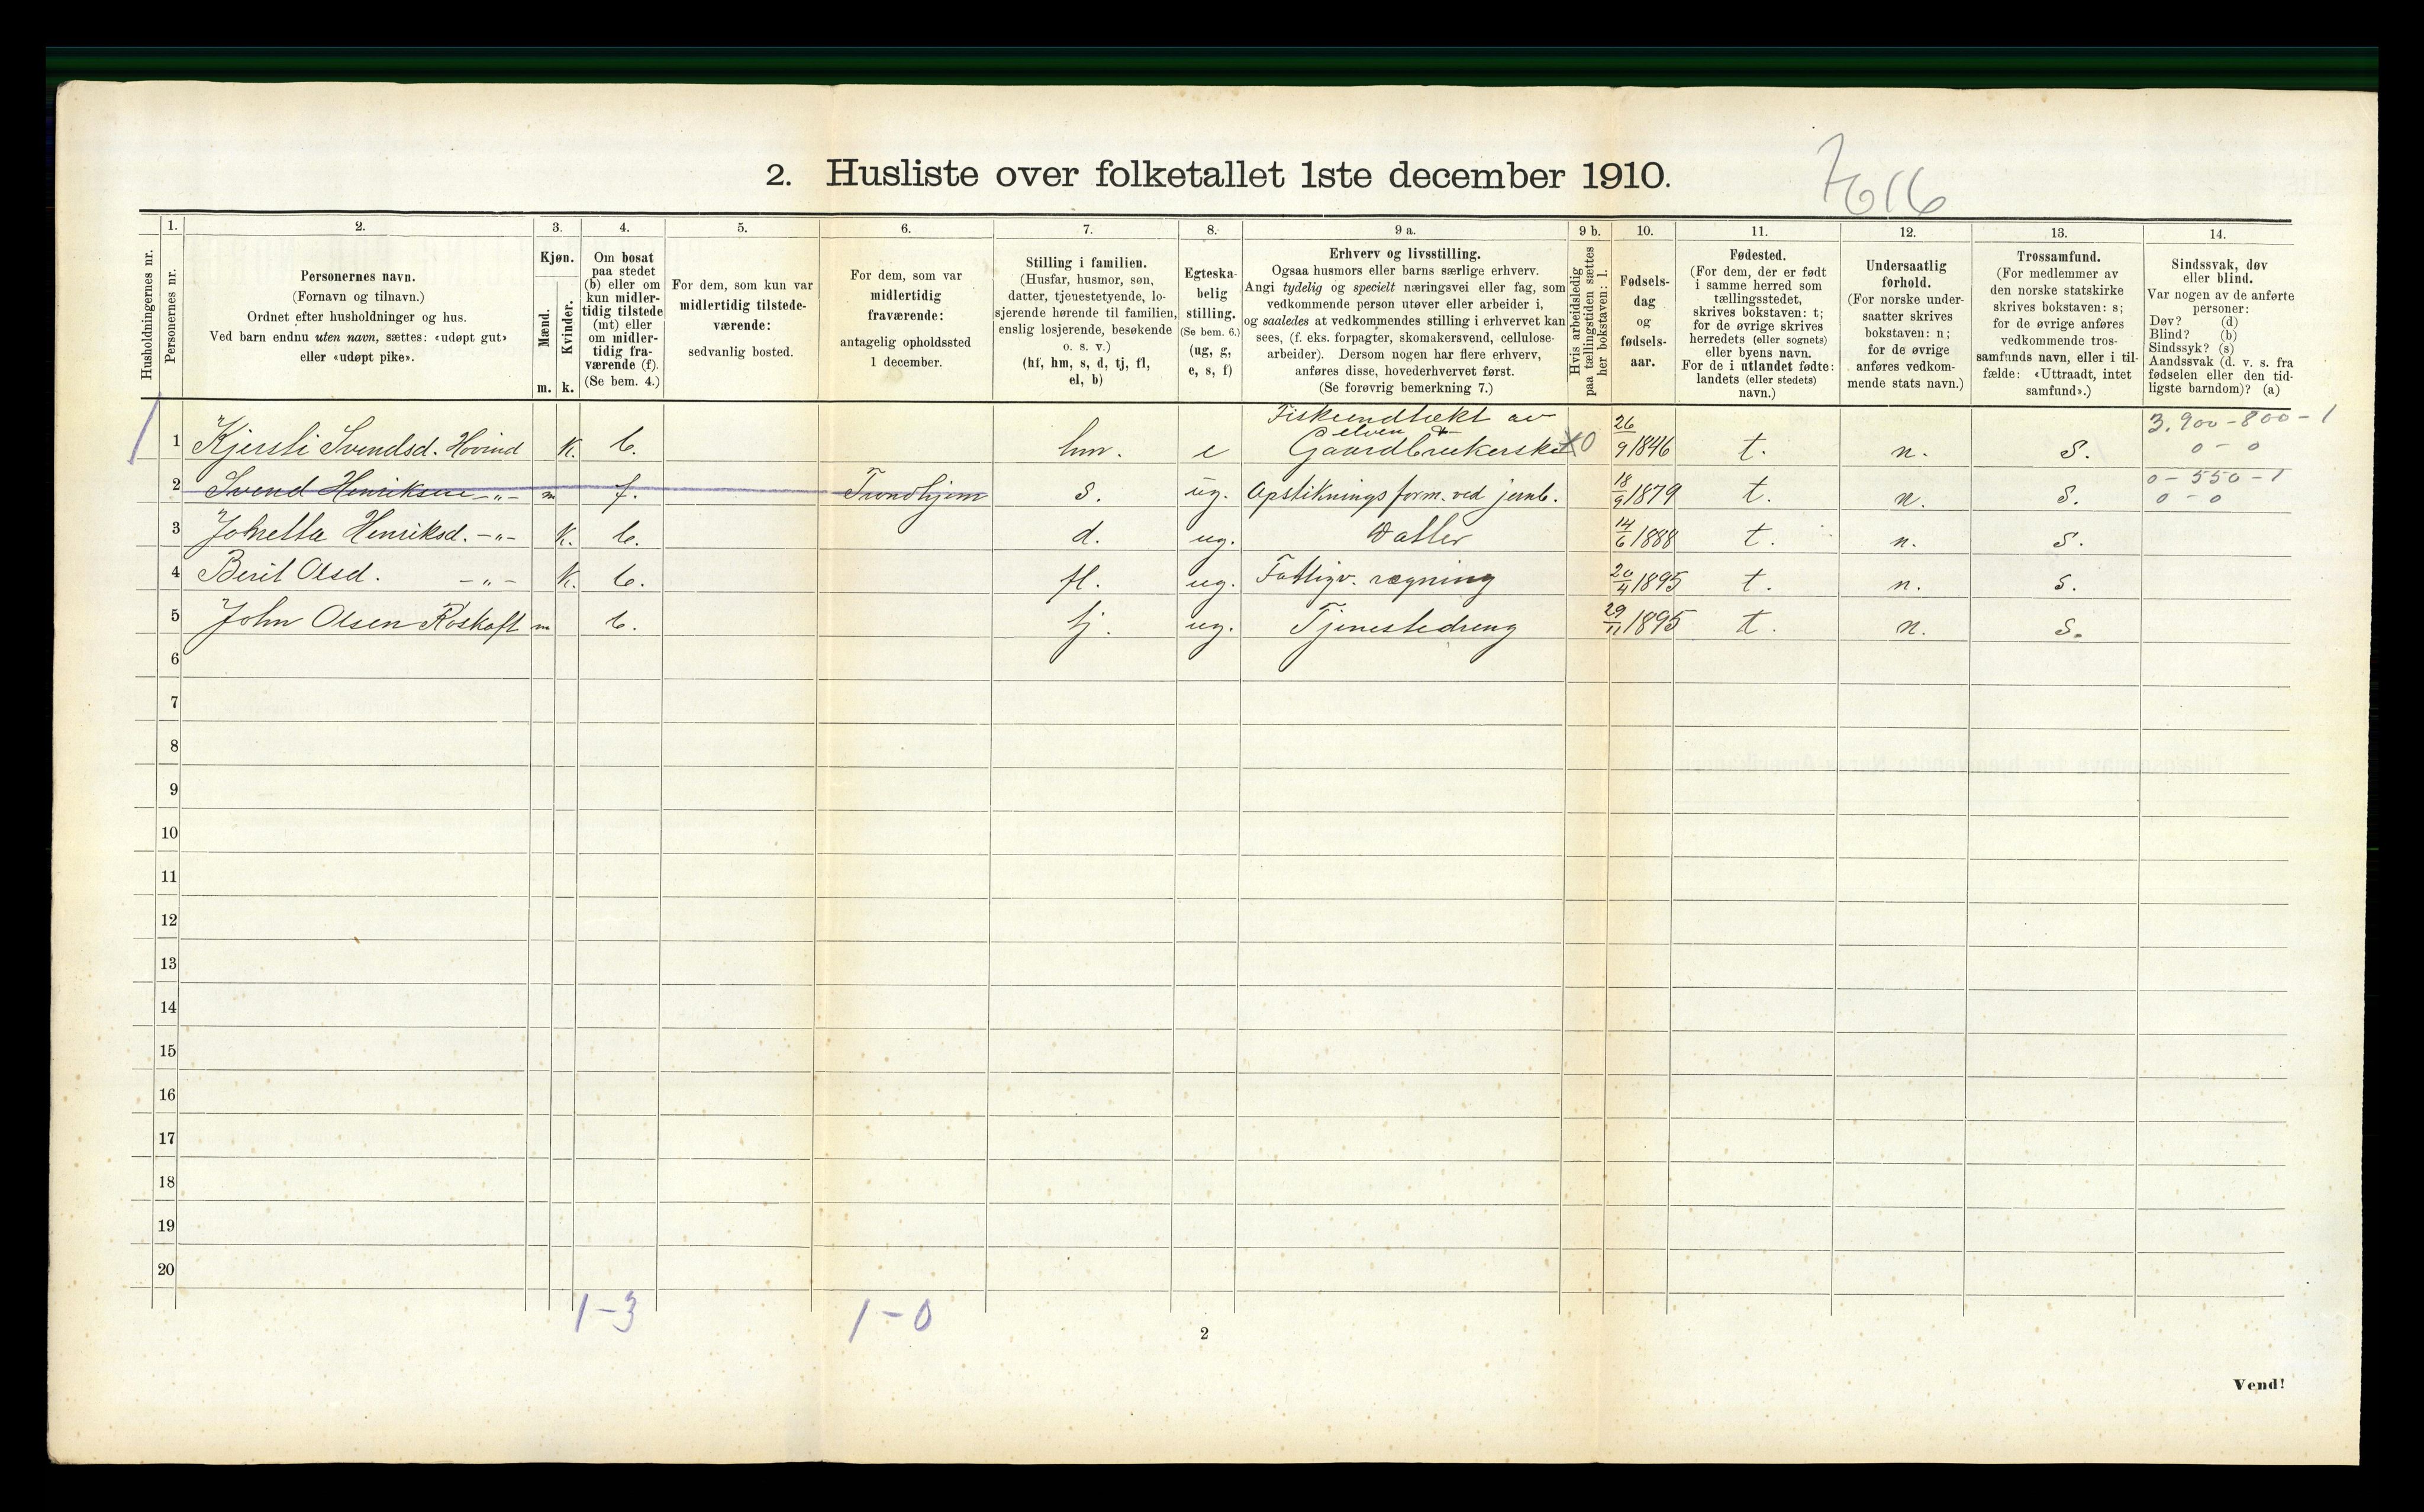 2. Husliste over folketallet 1ste december 1910.
1. 2. 3. 4. 5. 6. 7. 8. 9 a. 9 b. 10. 11. 12. 13. 14.
Husholdningernes nr.
Personernes nr.
Personernes navn.
(Fornavn og tilnavn.)
Ordnet efter husholdninger og hus.
Ved barn endnu uten navn, sættes: «udøpt gut»
eller «udøpt pike».
Kjøn.
Mænd.
m.
Kvinder.
k.
Om bosat
paa stedet
(b) eller om
kun midler-
tidig tilstede
(mt) eller
om midler-
tidig fra-
værende (f).
(Se bem. 4.)
For dem, som kun var
midlertidig tilstede-
værende:
sedvanlig bosted.
For dem, som var
midlertidig
fraværende:
antagelig opholdssted
1 december.
Stilling i familien.
(Husfar, husmor, søn,
datter, tjenestetyende, lo-
sjerende hørende til familien,
enslig losjerende, besøkende
o. s. v.)
(hf, hm, s, d, tj, fl,
el, b)
Egteska-
belig
stilling.
(Se bem. 6.)
(ug, g,
e, s, f)
Erhverv og livsstilling.
Ogsaa husmors eller barns særlige erhverv.
Angi tydelig og specielt næringsvei eller fag, som
vedkommende person utøver eller arbeider i,
og saaledes at vedkommendes stilling i erhvervet kan
sees, (f. eks. forpagter, skomakersvend, cellulose-
arbeider). Dersom nogen har flere erhverv,
anføres disse, hovederhvervet først.
(Se forøvrig bemerkning 7.)
Hvis arbeidsledig
paa tællingstiden sættes
her bokstaven: l.
Fødsels-
dag
og
fødsels-
aar.
Fødested.
(For dem, der er født
i samme herred som
tællingsstedet,
skrives bokstaven: t;
for de øvrige skrives
herredets (eller sognets)
eller byens navn.
For de i utlandet fødte:
landets (eller stedets)
navn.)
Undersaatlig
forhold.
(For norske under-
saatter skrives
bokstaven: n;
for de øvrige
anføres vedkom-
mende stats navn.)
Trossamfund.
(For medlemmer av
den norske statskirke
skrives bokstaven: s;
for de øvrige anføres
vedkommende tros-
samfunds navn, eller i til-
fælde: «Uttraadt, intet
samfund».)
Sindssvak, døv
eller blind.
Var nogen av de anførte
personer:
Døv? (d)
Blind? (b)
Sindssyk? (s)
Aandssvak (d. v. s. fra
fødselen eller den tid-
ligste barndom)? (a)
Fiskeindtækt av
elven + 3.900-800-1
1 Kjersti Svendsd. Hovind K. b. hm. e Gaardbrukerske X0 26/9 1846 t. n. S. 0 - 0
0 - 550 - 1
2 Svend Henriksen -„- m f. Trondhjem s. ug. Opstikningsform. ved jernb. 18/9 1879 t. n. s. 0 - 0
3 Johetta Henriksd. -„- K. b. d. ug. Datter 14/6 1888 t. n. s.
4 Berit Olsd. -„- K. b. fl. ug. Fattigv. regning 20/4 1895 t. n. s.
5 John Olsen Roskaft m b. tj. ug. Tjenestedreng 29/11 1895 t. n. s.
6
7
8
9
10
11
12
13
14
15
16
17
18
19
20
1-3 1-0
2
Vend!